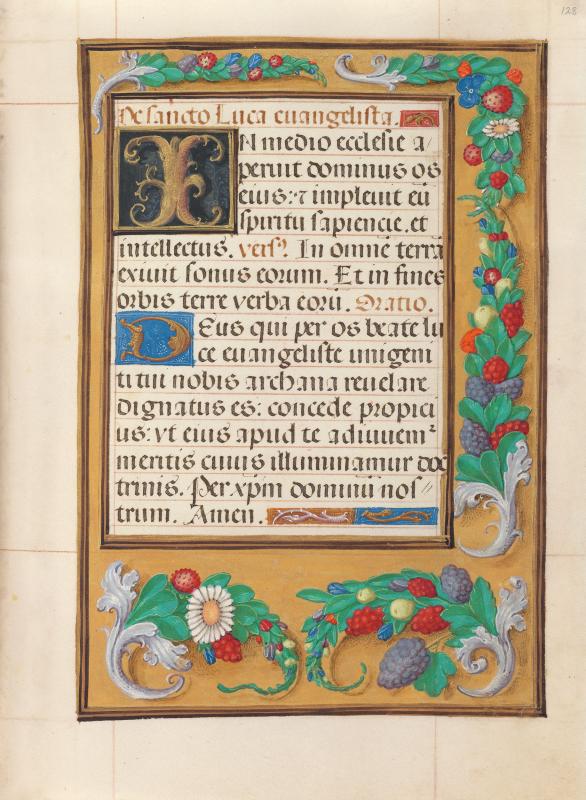 128
De sancto Luca euangelista.
IN medio ecclesie a
peruit dominus os
eius: ⁊ impleuit eū
spiritu sapiencie. et
intellectus. vers⁹. In omnē terrā
exiuit sonus eorum. Et in fines
orbis terre verba eorū. Oratio.
Deus qui per os beate lu
ce euangeliste unigeni
ti tui nobis archana reuelare
dignatus es: concede propici
us: vt eius apud te adiuuem²
meritis cuius illuminamur doc
trinis. Per xp̄m dominū nos //
trum. Amen.